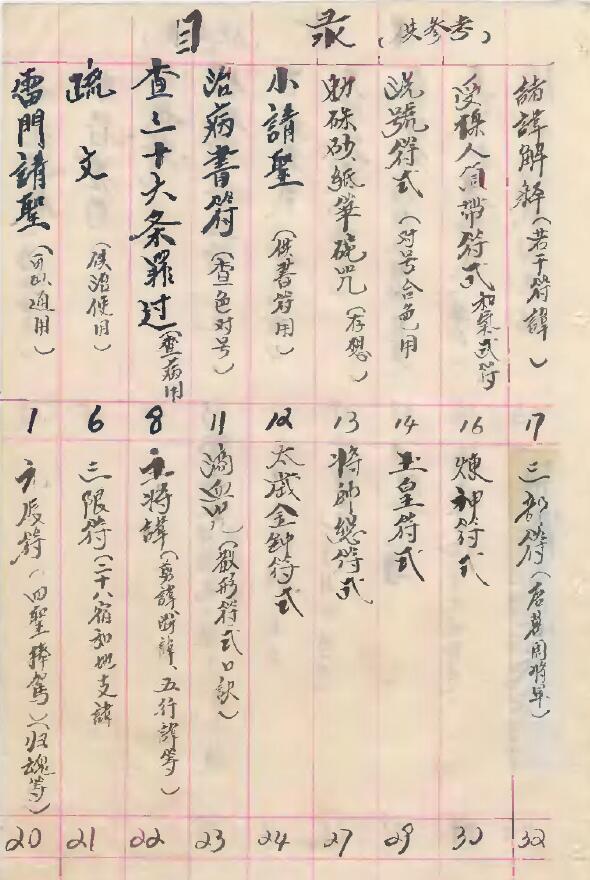 目 录 (供参考)
雷門請聖(可以通用) 1
疏文(供治使用) 6
查三十六条罪过(查病用) 8
治病書符(查色对号) 11
小請聖(供書符用) 12
勅硃砂紙筆硯咒(存想) 13
號符式(对号合色用) 14
受人带符式 和氣式符 16
諸諱解釋(若干符諱) 17
符(四聖捧駕)(归魂等) 20
三限符(二十八宿和地支諱) 21
主将諱(剪諱、斬諱、五行諱等) 22
滴血咒(形符式口訣) 23
太歲金鐘符式 24
将帥總符式 27
玉皇符式 29
煉神符式 30
三部符(唐葛周將軍) 32